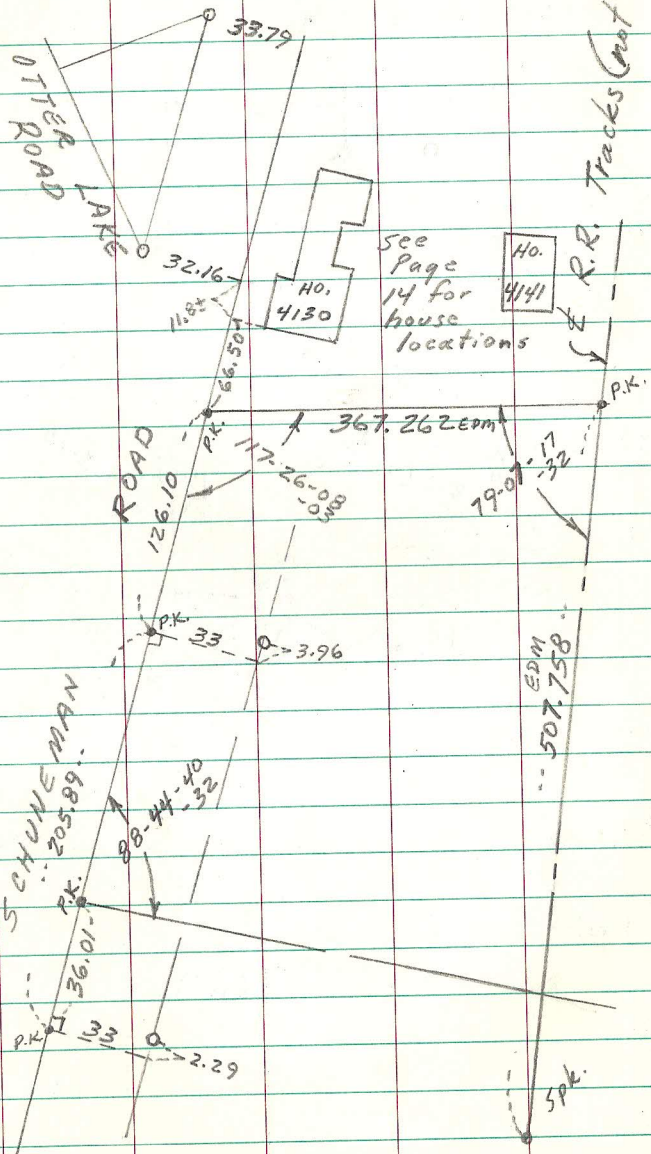 33.79
OTTER LAKE
ROAD
R.R. Tracks (not
32.16
11.8±
66.50
HO.
4130
See
Page
14 for
house
locations
HO.
4141
P.K.
P.K.
367.262 EDM
117-26-08
-03
79-07-17
-32
ROAD
126.10
P.K.
33
3.96
EDM
507.758
SCHUNEMAN
205.89
88-44-40
-32
P.K.
36.01
P.K.
33
2.29
SPK.